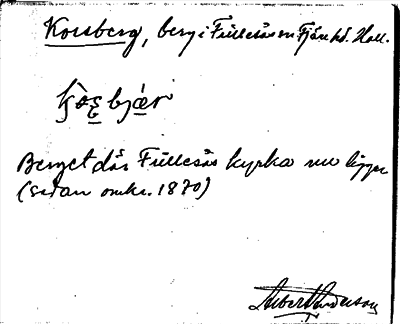 Korsberg, berg i Fullesås sn Fjäre hd. Hall.
Berget där Fullesås kyrka nu ligger
(sedan omkr. 1870)
Albert Anderson